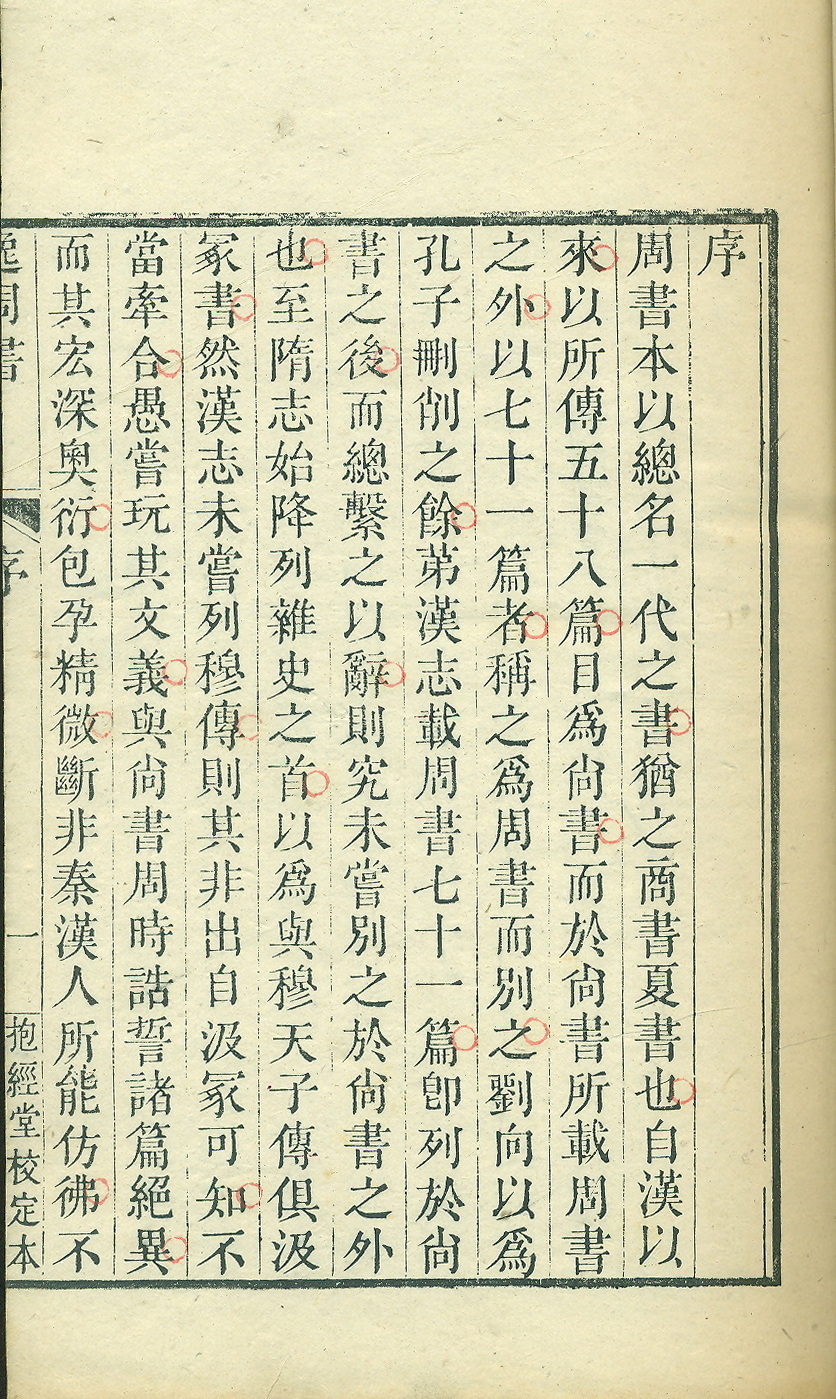 序
周書本以總名一代之書猶之商書夏書也自漢以
來以所傳五十八篇目爲尙書而於尙書所載周書
之外以七十一篇者稱之爲周書而別之劉向以爲
孔子刪削之餘苐漢志載周書七十一篇卽列於尙
書之後而總繫之以辭則究未嘗別之於尙書之外
也至隋志始降列雜史之首以爲與穆天子傳俱汲
冢書然漢志未嘗列穆傳則其非出自汲冢可知不
當牽合愚嘗玩其文義與尙書周時誥誓諸篇絕異
而其宏深奧衍包孕精微斷非秦漢人所能仿彿不
逸周書
序
一
抱經堂校定本